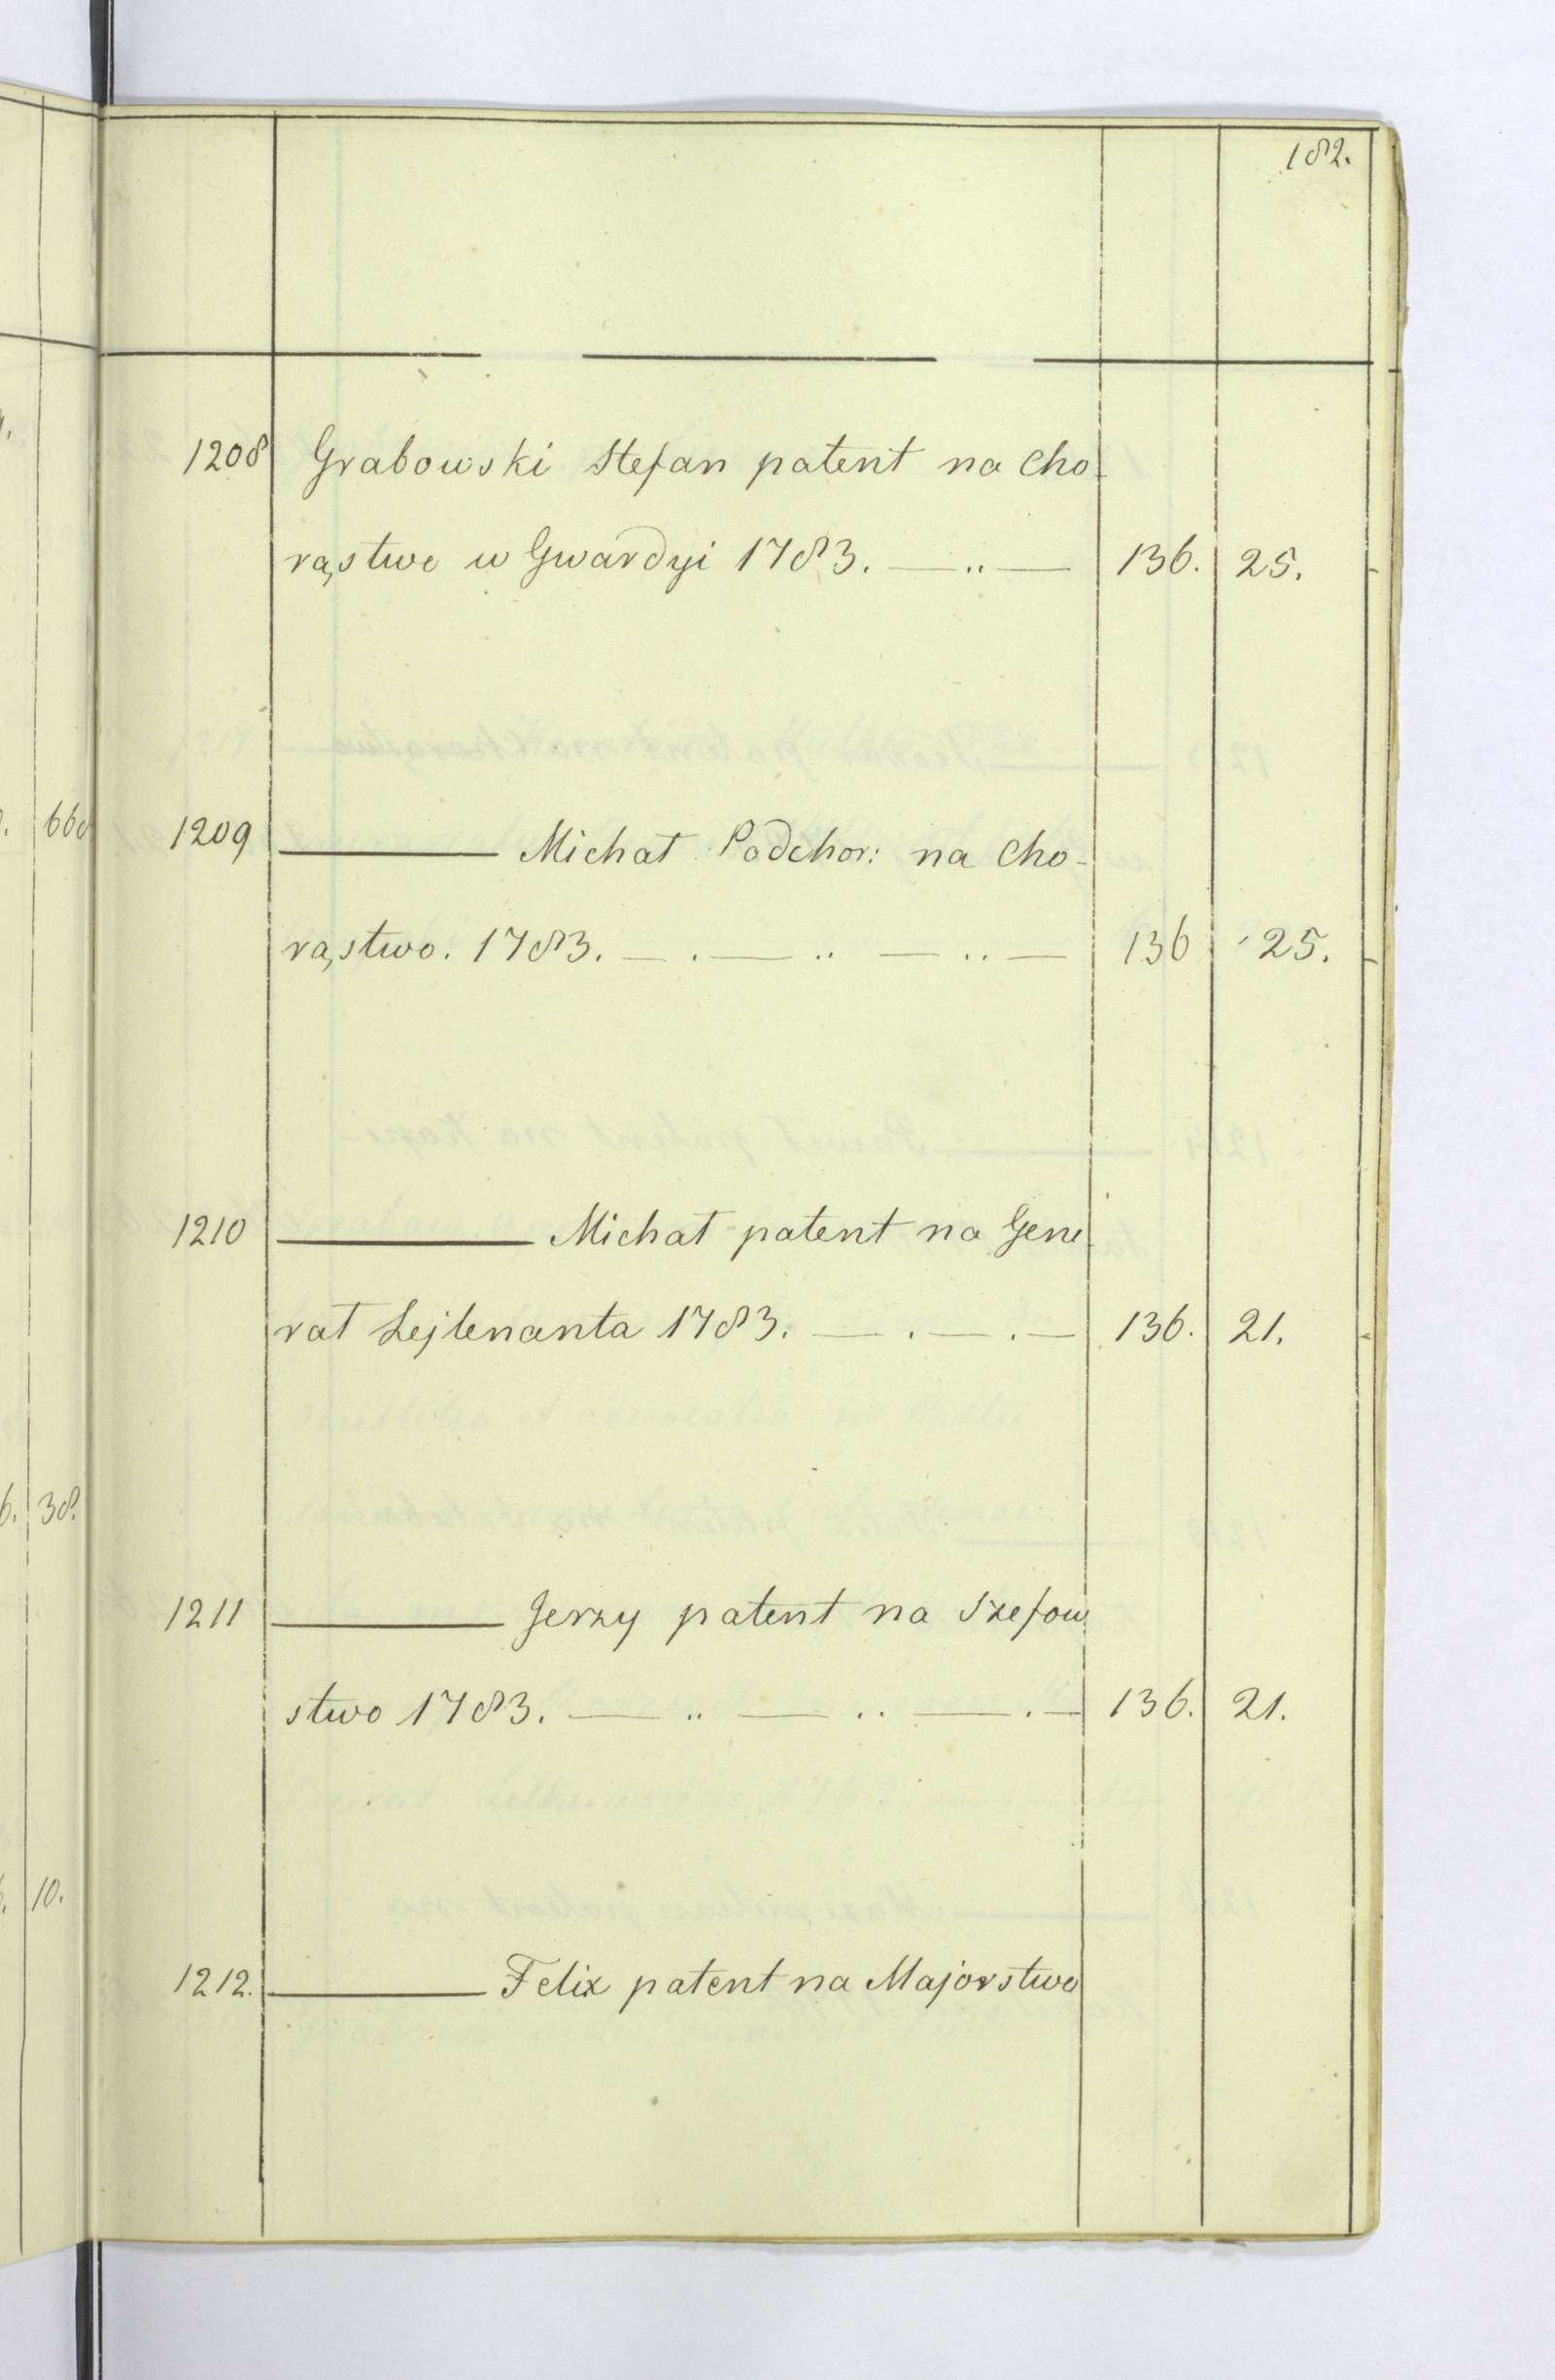 182.
1208 Grabowski Stefan patent na Cho
rąstwo w Gwardyi 1783. — .. — 136. 25.
1209 ——— Michał Podchor: na Cho-
rąstwo. 1783. — . — .. — .. — 136 25.
1210 ——— Michał patent na Gene
rał Lejtenanta 1783. — . — . — 136. 21.
1211 ——— Jerzy patent na Szefow
stwo 1783. — .. — .. — . — 136. 21.
1212. ——— Felix patent na Majorstwo
660
38.
10.